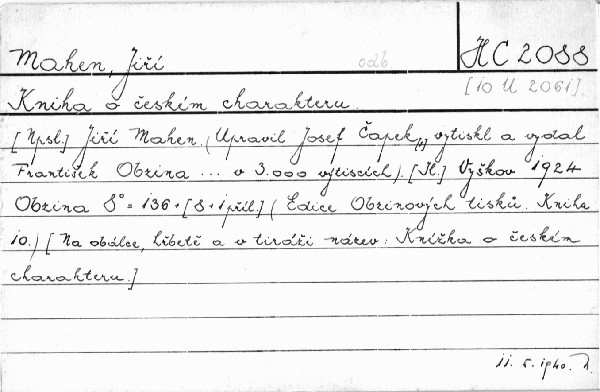 Mahen, Jiří odb HC 2088
[10 U 2061].
Kniha o českém charakteru.
[Npsl.] Jiří Mahen. (Upravil Josef Čapek, vytiskl a vydal
František Obzina ... v 3.000 výtiscích). [Il.] Vyškov 1924
Obzina 8° = 136+[8+1příl] (Edice Obzinových tisků. Kniha
10.) [Na obálce, hřbetě a v tiráži název: Knížka o českém
charakteru.]
11. 5. 1940.